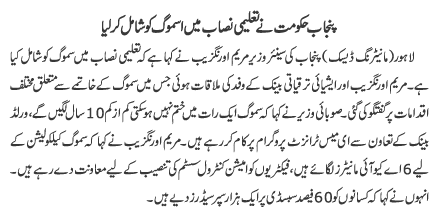 پنجاب حکومت نے تعلیمی نصاب میں اسموگ کو شامل کرلیا
لاہور (مانیٹرنگ ڈیسک) پنجاب کی سینئر وزیر مریم اورنگزیب نے کہا ہے کہ تعلیمی نصاب میں سموگ کو شامل کیا
ہے۔ مریم اورنگزیب اور ایشیائی ترقیاتی بینک کے وفد کی ملاقات ہوئی جس میں سموگ کے خاتمے سے متعلق مختلف
اقدامات پر گفتگو کی گئی۔ صوبائی وزیر نے کہا کہ سموگ ایک رات میں ختم نہیں ہوسکتی کم از کم 10 سال لگیں گے، ورلڈ
بینک کے تعاون سے ای میس ٹرانزٹ پروگرام پر کام کر رہے ہیں۔ مریم اورنگزیب نے کہا کہ سموگ کیلکولیشن کے
لیے 6 اے کیو آئی مانیٹرز لگائے ہیں، فیکٹریوں کو ایمشن کنٹرول سسٹم کی تنصیب کے لیے معاونت دے رہے ہیں۔
انہوں نے کہا کہ کسانوں کو 60 فیصد سبسڈی پر ایک ہزار سپر سیڈرز دیے ہیں۔